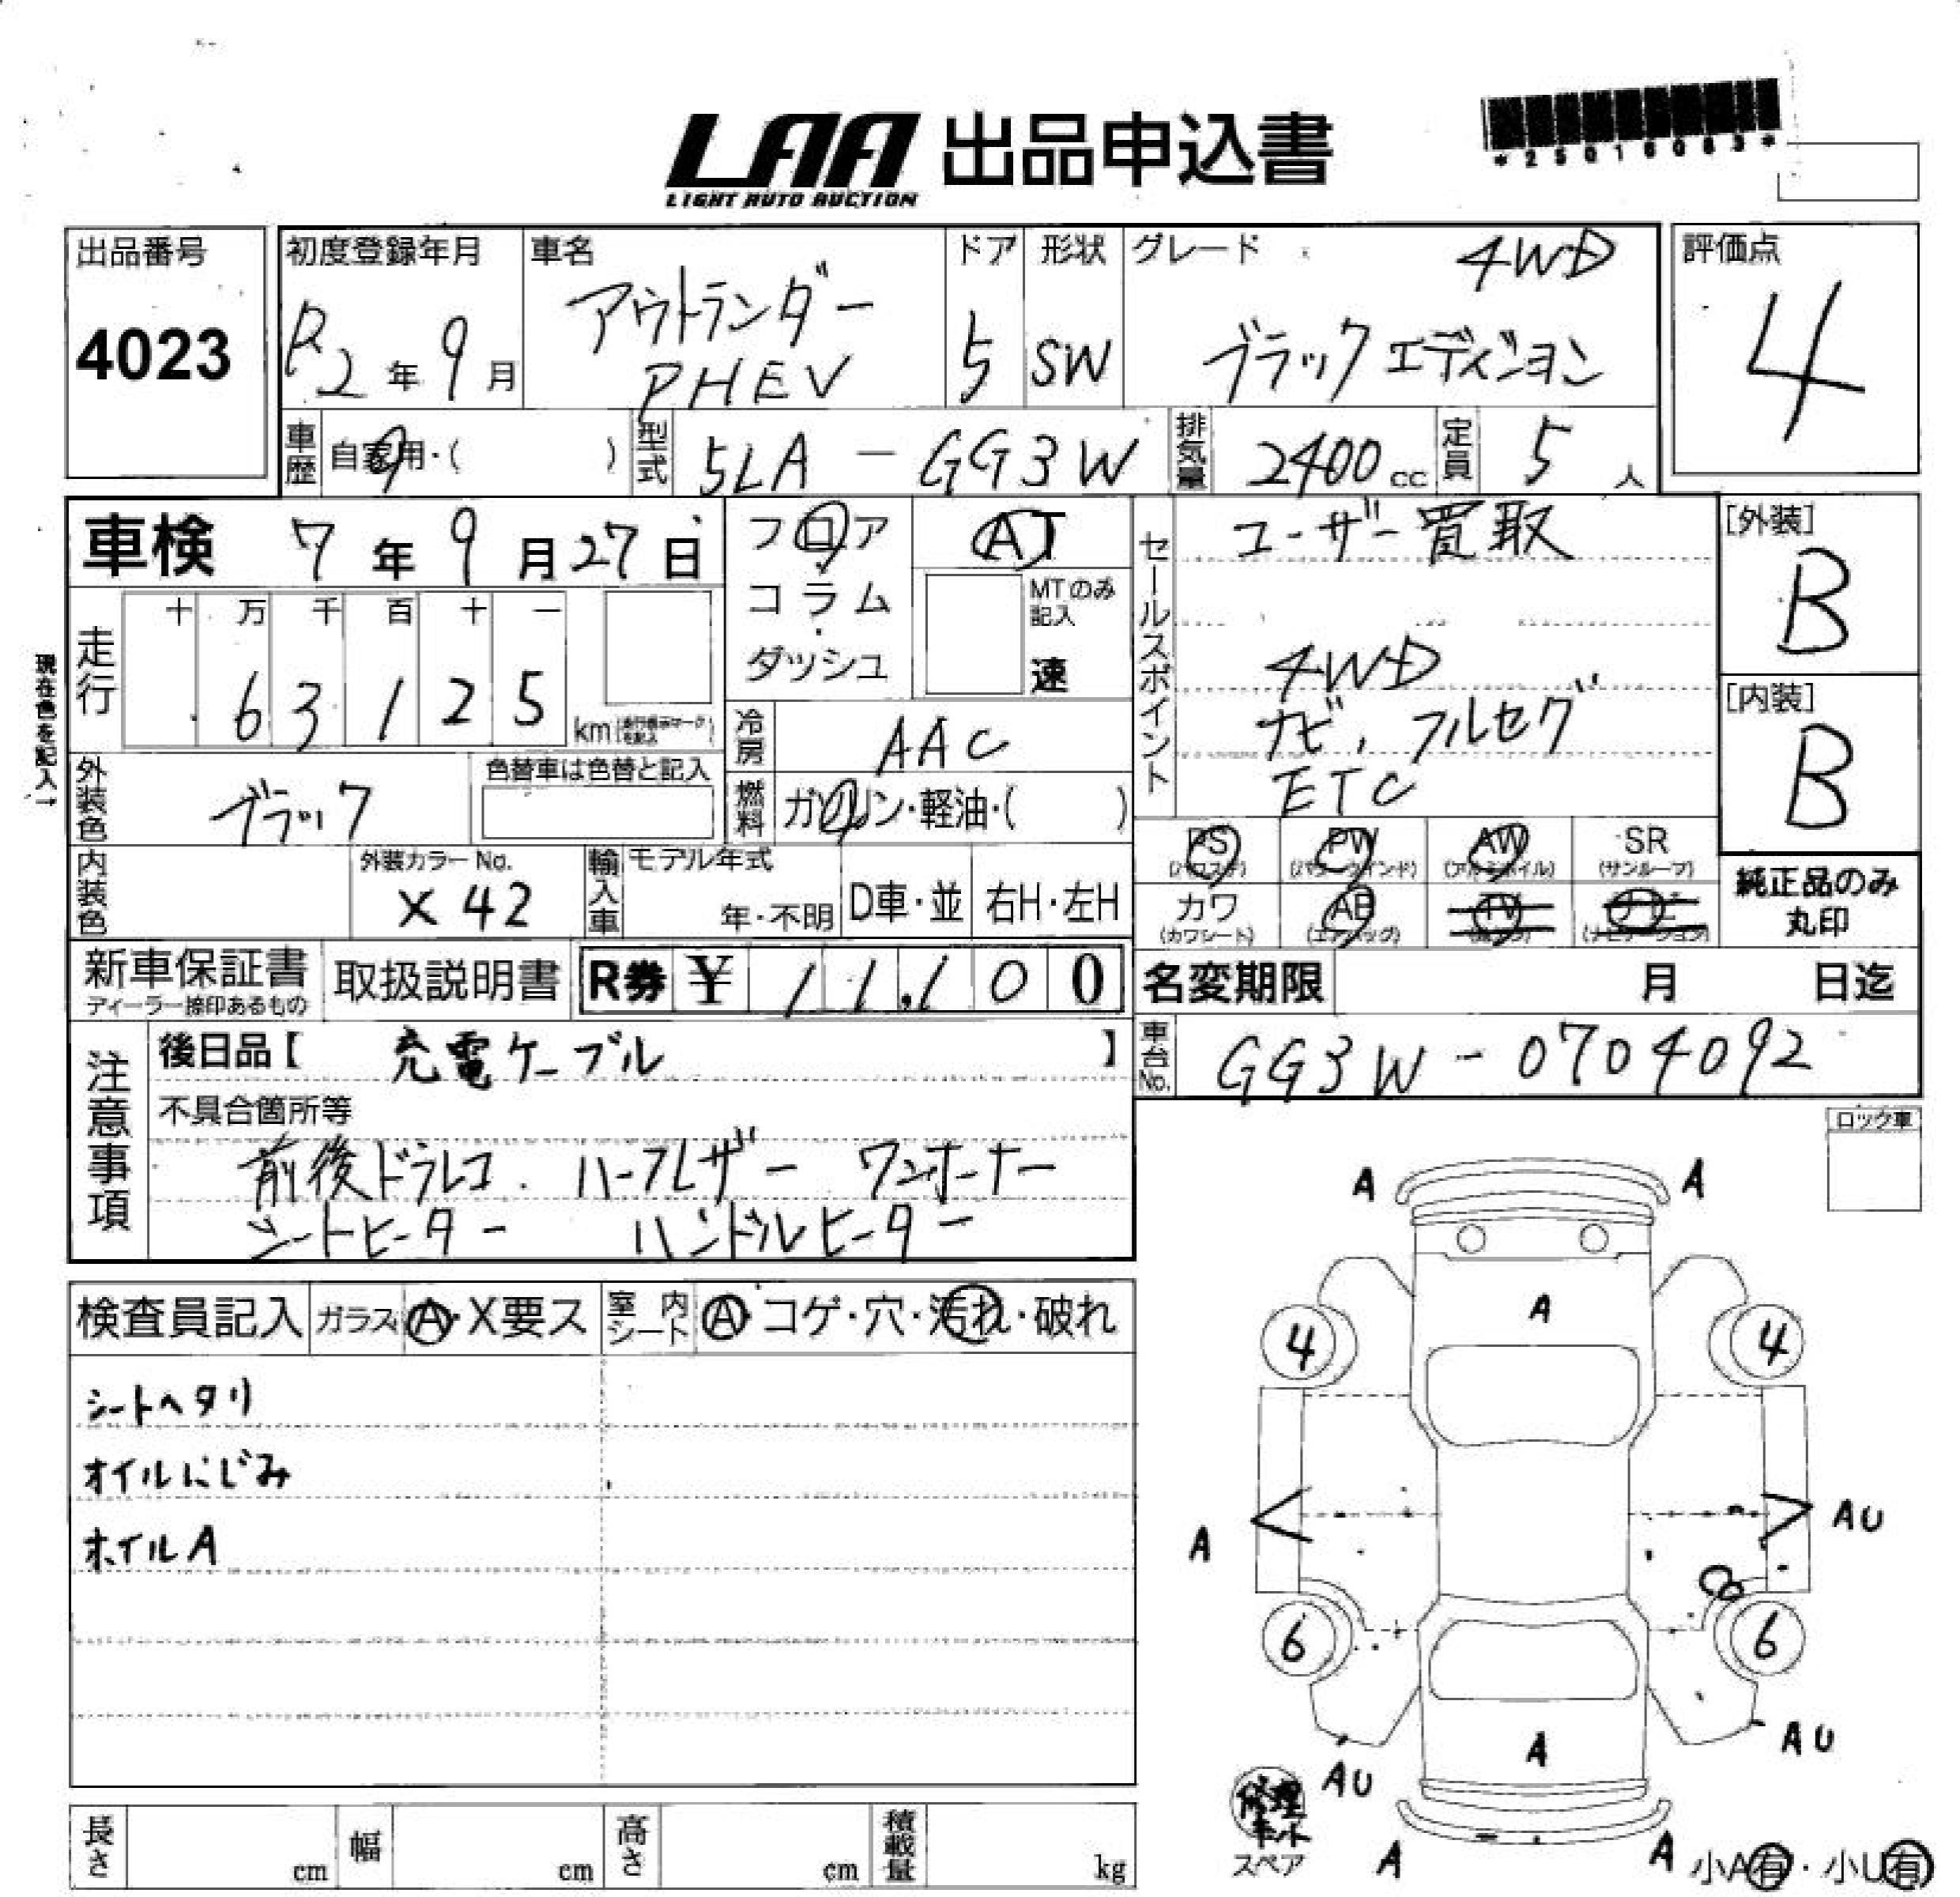 *25016083*
LAA 出品申込書
LIGHT AUTO AUCTION
出品番号
4023
初度登録年月
R2年9月
車名
アウトランダー
PHEV
ドア
5
形状
SW
グレード
4WD
ブラックエディション
評価点
4
車歴
自家用・( )
型式
5LA-GG3W
排気量
2400cc
定員
5人
車検 7年9月27日
フロア
コラム
・
ダッシュ
AT
MTのみ
記入
速
セールスポイント
ユーザー買取
4WD
ナビ,フルセグ
ETC
[外装]
B
[内装]
B
現在色を記入→
走行
十 万 千 百 十 一
6 3 1 2 5
km
冷房
AAC
外装色
ブラック
色替車は色替と記入
燃料
ガソリン・軽油・( )
内装色
外装カラーNo.
X42
輸入車
モデル年式
年・不明
D車・並
右H・左H
PS
(パワステ)
PW
(パワーウインド)
AW
(アルミホイル)
SR
(サンルーフ)
カワ
(カワシート)
AB
(エアバッグ)
TV
(ナビゲーション)
純正品のみ
丸印
新車保証書
ディーラー捺印あるもの
取扱説明書
R券 ¥ 11,100
名変期限 月 日迄
注意事項
後日品【 充電ケーブル 】
車台No.
GG3W-0704092
不具合箇所等
前後ドラレコ. ハーフレザー ワンオーナー
シートヒーター ハンドルヒーター
ロック車
検査員記入
ガラス
A・X要ス
室内シート
A・コゲ・穴・汚れ・破れ
シートヘタリ
オイルにじみ
ホイルA
A A
A
4 4
A AU
6 6
AU A AU
修理キット
スペア
A A
小A有・小U有
長さ cm
幅 cm
高さ cm
積載量 kg